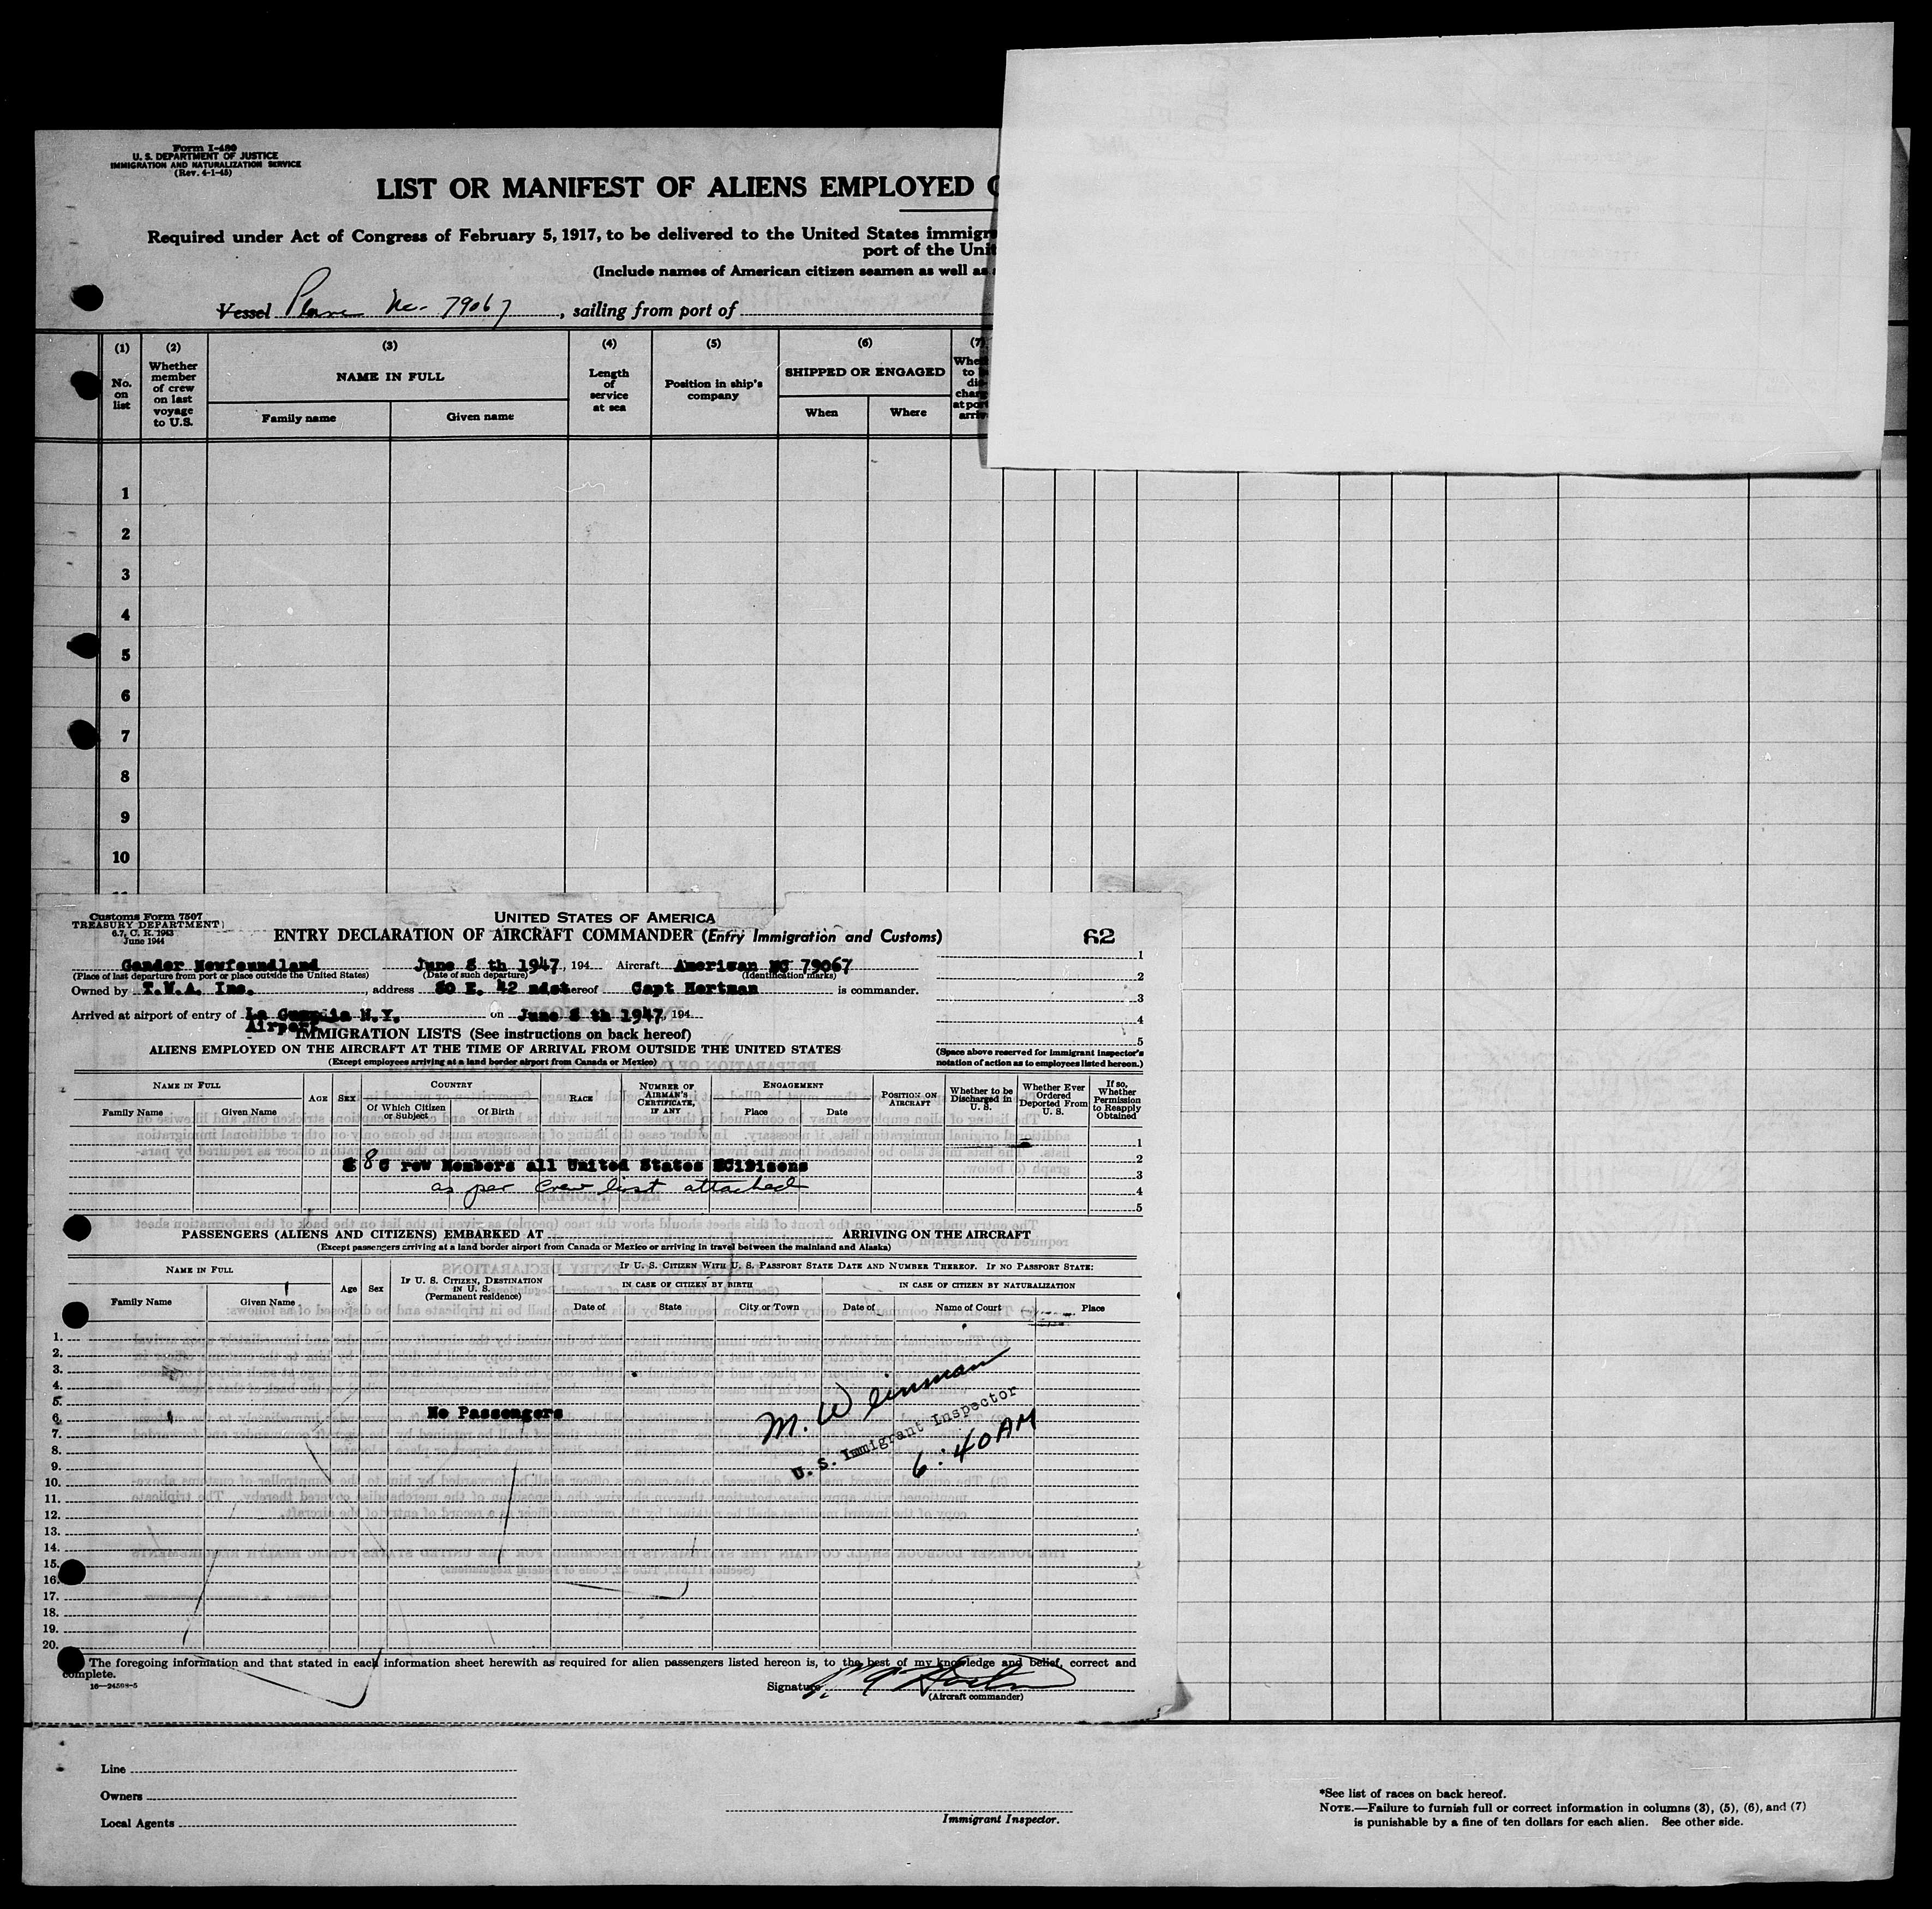 Form I-480
U. S. DEPARTMENT OF JUSTICE
IMMIGRATION AND NATURALIZATION SERVICE
(Rev. 4-1-45)
LIST OR MANIFEST OF ALIENS EMPLOYED
Required under Act of Congress of February 5, 1917, to be delivered to the United States immigr
port of the Unit
(Include names of American citizen seamen as well as
Vessel Plane Nc- 79067, sailing from port of
(1) (2) (3) (4) (5) (6) (7)
No. on list
Whether member of crew on last voyage to U.S.
NAME IN FULL
Family name Given name
Length of service at sea
Position in ship's company
SHIPPED OR ENGAGED
When Where
1
2
3
4
5
6
7
8
9
10
11
Customs Form 7507
TREASURY DEPARTMENT
6.7, C. R. 1943
June 1944
UNITED STATES OF AMERICA
ENTRY DECLARATION OF AIRCRAFT COMMANDER (Entry Immigration and Customs)
62
Gander Newfoundland June 8 th 1947, 194 Aircraft American NC 79067
(Place of last departure from port or place outside the United States) (Date of such departure) (Identification marks)
Owned by T.W.A. Inc., address 80 E. 42 nd st hereof Capt Hertman is commander.
Arrived at airport of entry of La N.Y. on June 8 th 1947, 194
Airport
IMMIGRATION LISTS (See instructions on back hereof)
ALIENS EMPLOYED ON THE AIRCRAFT AT THE TIME OF ARRIVAL FROM OUTSIDE THE UNITED STATES
(Except employees arriving at a land border airport from Canada or Mexico)
1
2
3
4
5
(Space above reserved for immigrant inspector's
notation of action as to employees listed hereon.)
NAME IN FULL
Family Name Given Name
AGE SEX
COUNTRY
Of Which Citizen or Subject Of Birth
RACE
NUMBER OF AIRMAN'S CERTIFICATE, IF ANY
ENGAGEMENT
Place Date
POSITION ON AIRCRAFT
Whether to be Discharged in U. S.
Whether Ever Ordered Deported From U. S.
If so, Whether Permission to Reapply Obtained
1
2
8 C rew Members all United States Citizens
3
as per crew list attached
4
5
PASSENGERS (ALIENS AND CITIZENS) EMBARKED AT ARRIVING ON THE AIRCRAFT
(Except passengers arriving at a land border airport from Canada or Mexico or arriving in travel between the mainland and Alaska)
NAME IN FULL
Family Name Given Name
Age Sex
IF U. S. CITIZEN, DESTINATION IN U. S. (Permanent residence)
IF U. S. CITIZEN WITH U. S. PASSPORT STATE DATE AND NUMBER THEREOF. IF NO PASSPORT STATE:
IN CASE OF CITIZEN BY BIRTH IN CASE OF CITIZEN BY NATURALIZATION
Date of State City or Town Date of Name of Court Place
1.
2.
3.
4.
5.
6. No Passengers
7.
8.
9.
10.
11.
12.
13.
14.
15.
16.
17.
18.
19.
20.
M. Weinman
U. S. Immigrant Inspector
6:40 AM
The foregoing information and that stated in each information sheet herewith as required for alien passengers listed hereon is, to the best of my knowledge and belief, correct and
complete.
16—24598-5
Signature
(Aircraft commander)
Line
Owners
Local Agents
Immigrant Inspector.
*See list of races on back hereof.
NOTE.—Failure to furnish full or correct information in columns (3), (5), (6), and (7)
is punishable by a fine of ten dollars for each alien. See other side.